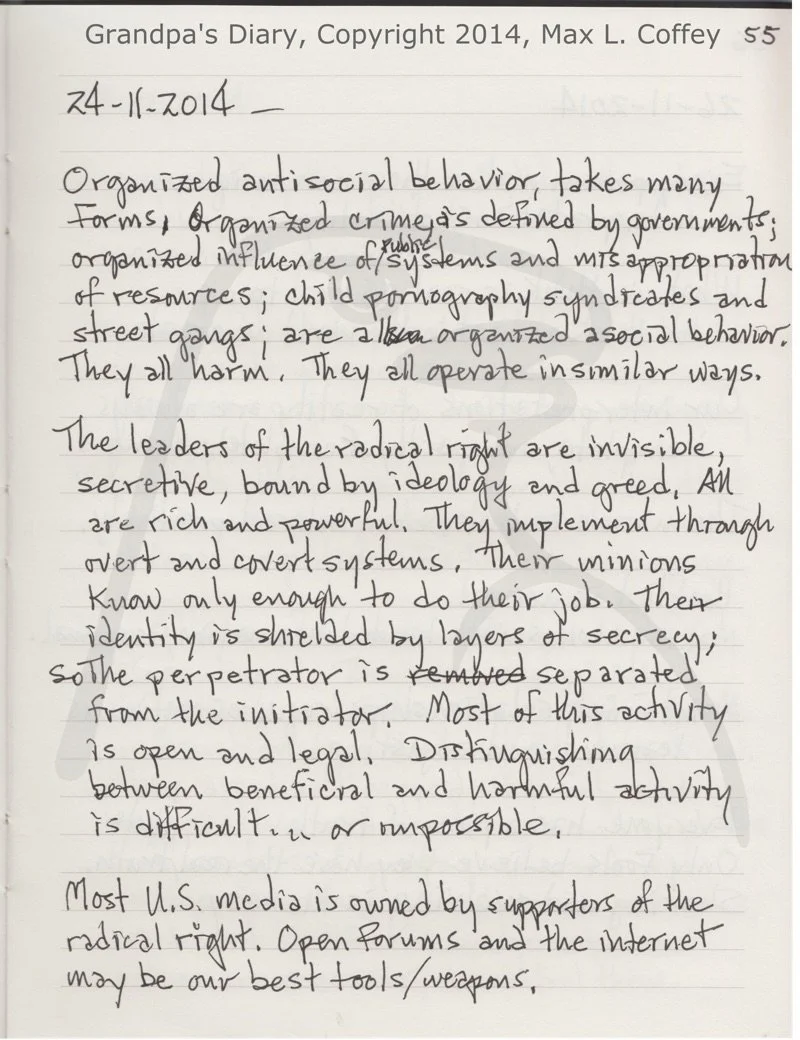 Grandpa's Diary, Copyright 2014, Max L. Coffey 55
24-11-2014 —
Organized antisocial behavior, takes many
forms, Organized crime, as defined by governments;
organized influence of/public systems and misappropriation
of resources; child pornography syndicates and
street gangs; are all organized asocial behavior.
They all harm. They all operate in similar ways.
The leaders of the radical right are invisible,
secretive, bound by ideology and greed. All
are rich and powerful. They implement through
overt and covert systems. Their minions
know only enough to do their job. Their
identity is shielded by layers of secrecy;
so The perpetrator is removed separated
from the initiator. Most of this activity
is open and legal. Distinguishing
between beneficial and harmful activity
is difficult... or impossible.
Most U.S. media is owned by supporters of the
radical right. Open forums and the internet
may be our best tools/weapons.